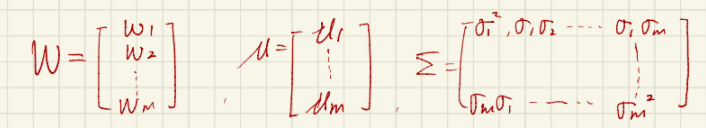 W = [ w₁ w₂ ⋮ wₘ ] , μ = [ μ₁ ⋮ μₘ ] , Σ = [ σ₁², σ₁σ₂ ---- σ₁σₘ ⋮ σₘσ₁ ---- σₘ² ]